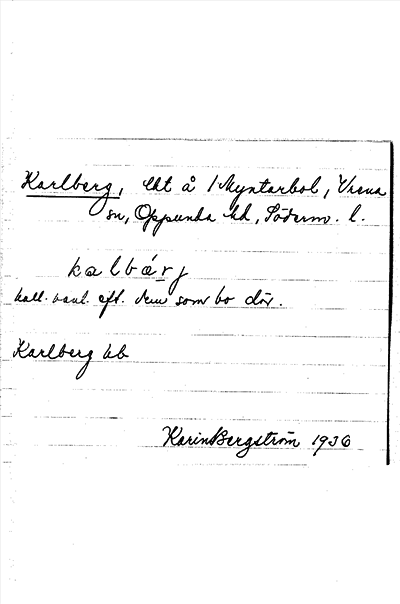 Karlberg, lht å 1 Myntarbol, Vrena
sn, Oppunda hd, Söderm. l.
kalbárj
kall. vanl. eft. dem som bo där.
Karlberg kb
Karin Bergström 1936